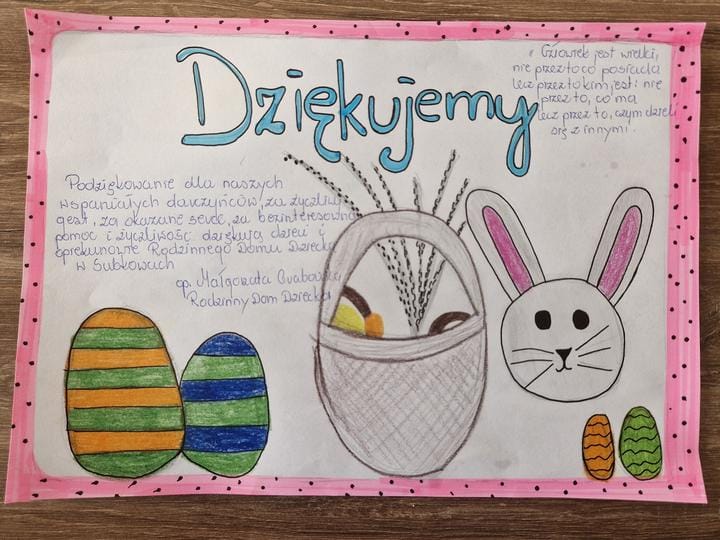 Dziękujemy
" Człowiek jest wielki,
nie przez to co posiada
lecz przez to kim jest: nie
przez to, co ma
lecz przez to, czym dzieli
się z innymi.
Podziękowanie dla naszych
wspaniałych darczyńców, za życzliwy
gest, za okazane serce, za bezinteresowną
pomoc i życzliwość dziękują dzieci i
opiekunowie Rodzinnego Domu Dziecka
w Subkowach
op. Małgorzata
Rodzinny Dom Dziecka